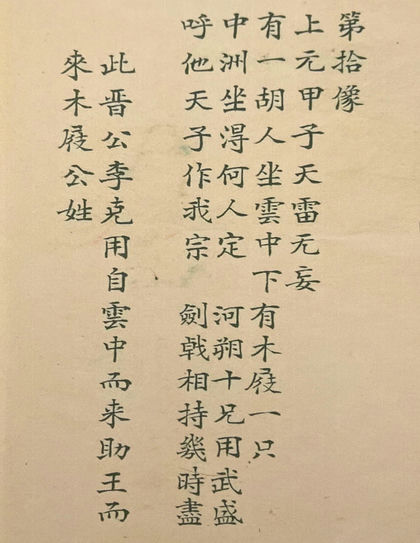 第拾像
上元甲子天雷无妄
有一胡人坐雲中下有木屐一只
中洲坐淂何人定 河朔十兄用武盛
呼他天子作我宗 劍戟相持幾時盡
此晋公李克用自雲中而来助王而
來木屐公姓